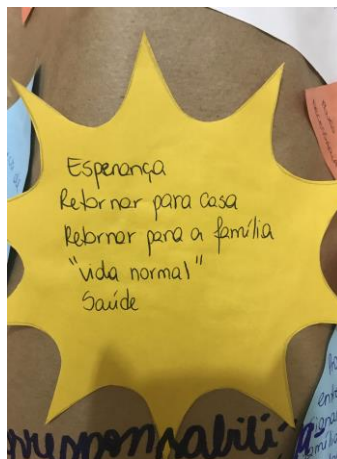 Esperança
Retornar para casa
Retornar para a família
"vida normal"
Saúde